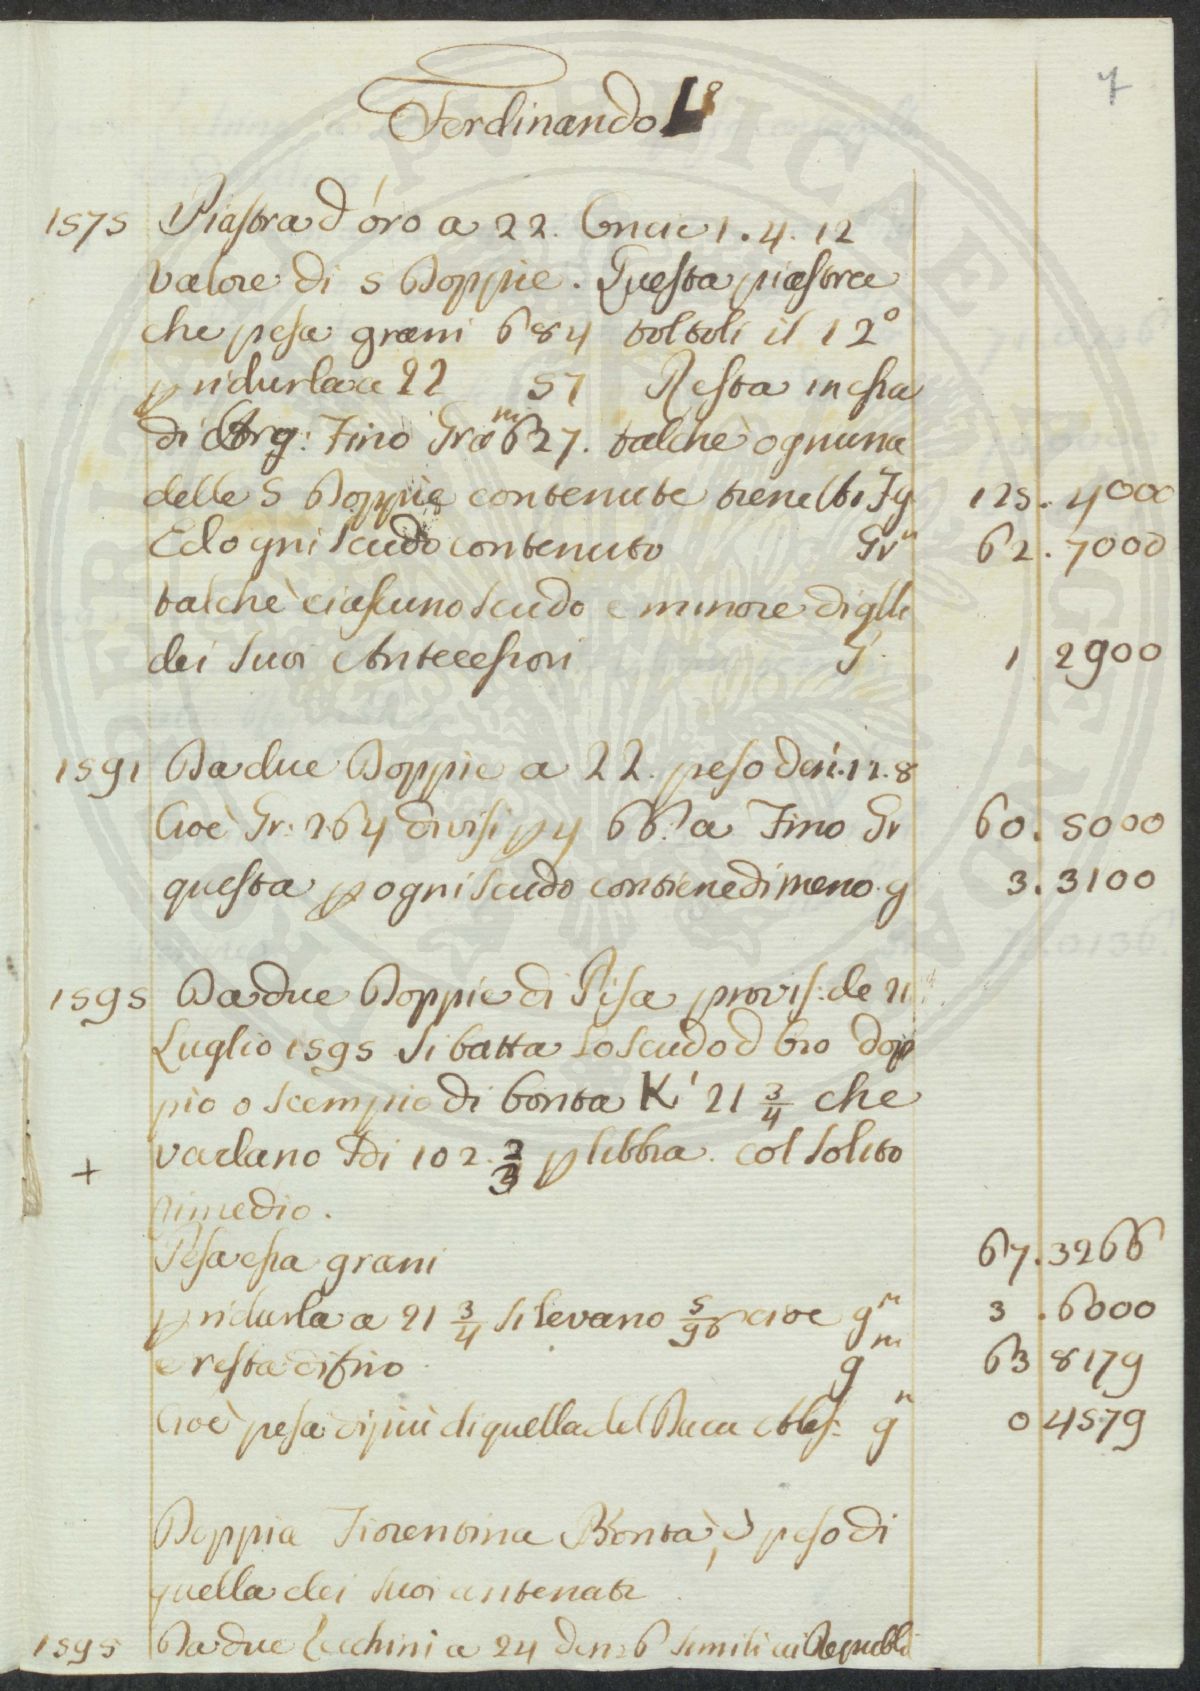 7
Ferdinando I.°
1575 Piastra d'oro a 22. Oncie 1. 4. 12
Valore di 5 Doppie. Questa piastra
che pesa grani 684 toltoli il 12°
p ridurla a 22 57 Resta in essa
di Arg: Fino Gra.ni 627. talche ognuna
delle 5 Doppie contenute tiene 125. 4000
Ed ogni Scudo contenuto Gr.n 62. 7000
talchè ciascuno Scudo e minore di glli
dei Suoi Antecessori g. 1 2900
1591 Da due Doppie a 22. peso den.i. 12. 8
Cioè Gr: 264 divisi p 4 66. a Fino Gr 60. 5000
questa p ogni Scudo contiene di meno. g 3. 3100
1595 Da due Doppie di Pisa provis: de 21
Luglio 1595 Si batta lo Scudo d'Oro dop
pio o scempio di bonta K.i 21 3/4 che
vadano Pdi 102. 2/3 p libbra. col Solito
+ rimedio.
Pesa essa grani 67. 3266
p ridurla a 21 3/4 si levano 5/96 cioe g.n 3. 6000
e resta di fino g.ni 63 8179
Cioè pesa di piu di quella del Duca Ales: g.n 0 4579
Doppia Fiorentina Bontà, e peso di
quella dei Suoi antenati
1595 Da due Zecchini a 24 den: 6 Simili ai Republi